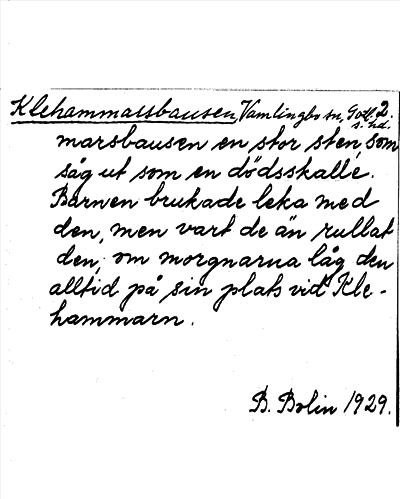 Klehammarsbausen, Vamlingbo sn, Gotl. 2.
s. hd.
marsbausen en stor sten, som
såg ut som en dödsskalle.
Barnen brukade leka med
den, men vart de än rullat
den, om morgnarna låg den
alltid på sin plats vid Kle-
hammarn.
B. Bolin 1929.